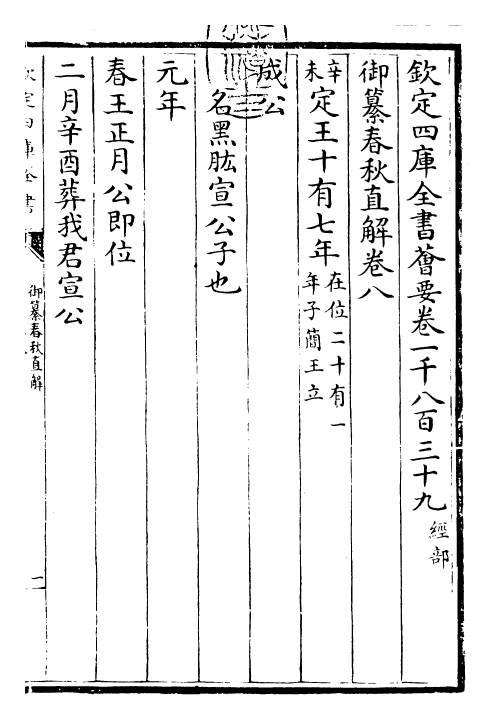 欽定四庫全書薈要卷一千八百三十九 經部
御纂春秋直解卷八
辛未 定王十有七年 在位二十有一年子簡王立
成公
名黑肱宣公子也
元年
春王正月公即位
二月辛酉葬我君宣公
欽定四庫全書
御纂春秋直解
一